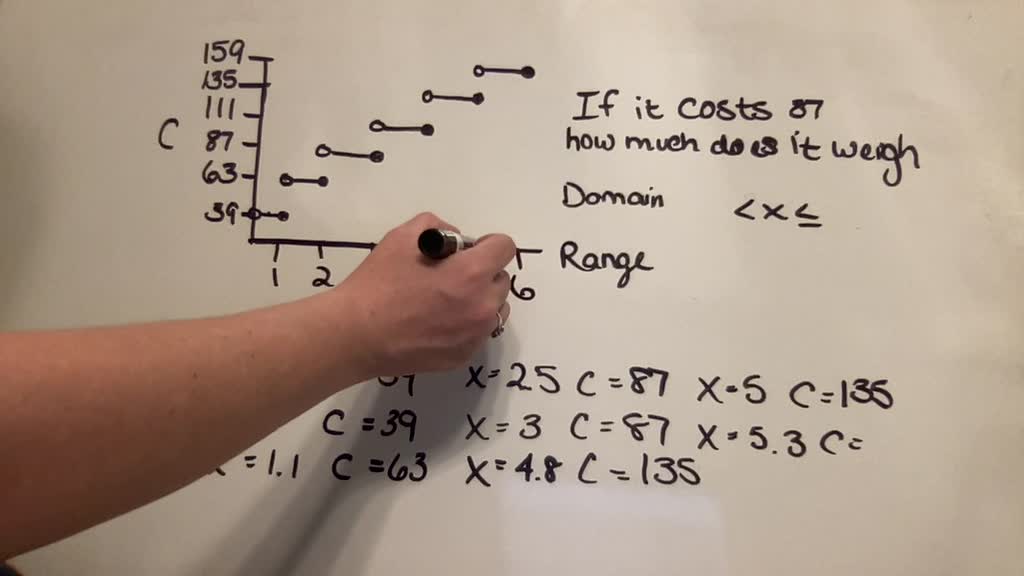 159
135
111
C 87
63
39
1 2 6
If it costs 87
how much does it weigh
Domain < x ≤
Range
x=25 C=87 x=5 C=135
C=39 x=3 C=87 x=5.3 C=
=1.1 C=63 x=4.8 C=135